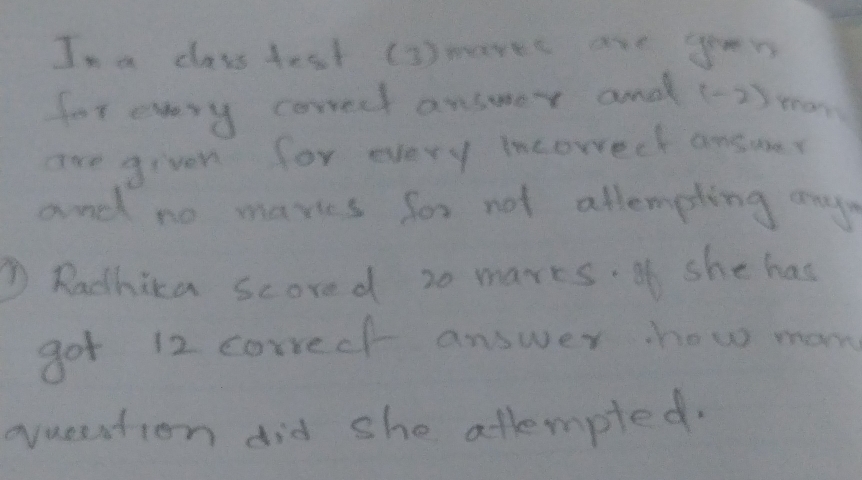 In a class test (3) marks are given
for every correct answer and (-2)
are given for every incorrect answer
and no marks for not attempting
Radhika scored 20 marks. If she has
got 12 correct answer how
question did she attempted.